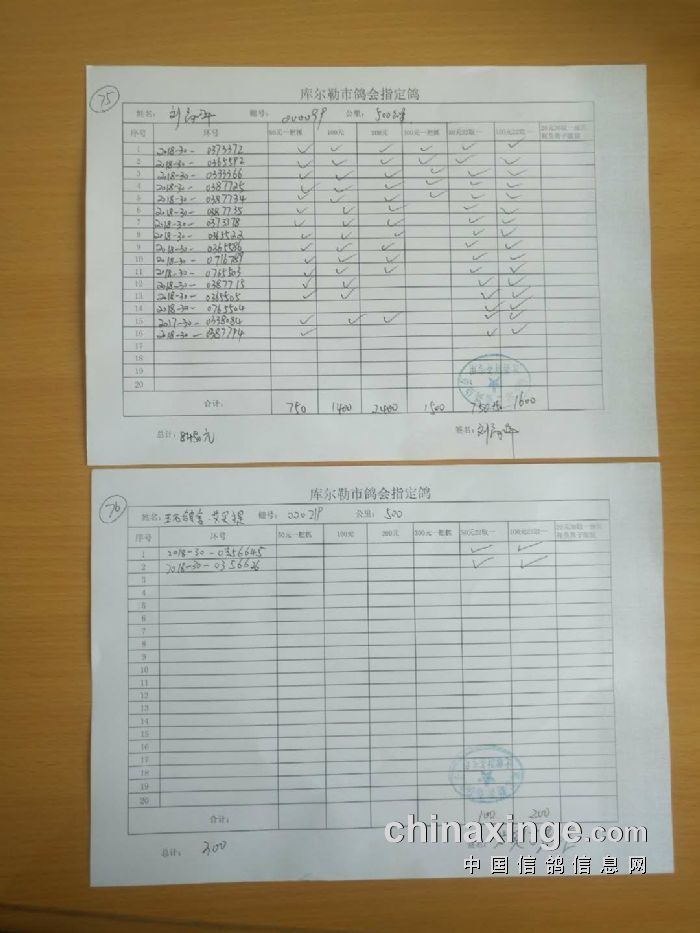 75
库尔勒市鸽会指定鸽
姓名: 棚号: 000099 公里: 500
序号 环号 50元一把抓 100元 200元 300元一把抓 50元22取一 100元22取一
1 2018-30- 0373372 ✓ ✓ ✓ ✓ ✓ ✓
2 2018-30- 0365592 ✓ ✓ ✓ ✓ ✓ ✓
3 2018-30- ✓ ✓ ✓ ✓ ✓ ✓
4 2018-30- 0387725 ✓ ✓ ✓ ✓ ✓ ✓
5 2018-30- 0387734 ✓ ✓ ✓ ✓ ✓ ✓
6 2018-30- 0387735 ✓ ✓ ✓ ✓ ✓
7 2018-30- 0373378 ✓ ✓ ✓ ✓ ✓
8 2018-30- ✓ ✓ ✓ ✓ ✓
9 2018-30- 0365586 ✓ ✓ ✓ ✓ ✓
10 2018-30- 0716789 ✓ ✓ ✓ ✓ ✓
11 2018-30- 0765503 ✓ ✓ ✓ ✓ ✓
12 2018-30- 0387715 ✓ ✓ ✓ ✓
13 2018-30- 0365505 ✓ ✓ ✓ ✓
14 2018-30- 0765504 ✓ ✓
15 2017-30- 0338084 ✓ ✓ ✓ ✓ ✓
16 2018-30- 0387794 ✓ ✓ ✓
17
18
19
20
合计: 750 1400 2400 1500 1600
总计: 8450元 签名:
76
库尔勒市鸽会指定鸽
姓名: 棚号: 000219 公里: 500
序号 环号 50元一把抓 100元 200元 300元一把抓 50元22取一 100元22取一
1 2018-30-0356645 ✓ ✓
2 2018-30-0356626 ✓ ✓
3
4
5
6
7
8
9
10
11
12
13
14
15
16
17
18
19
20
合计: 100 200
总计: 300 签名:
chinaxinge.com
中国信鸽信息网